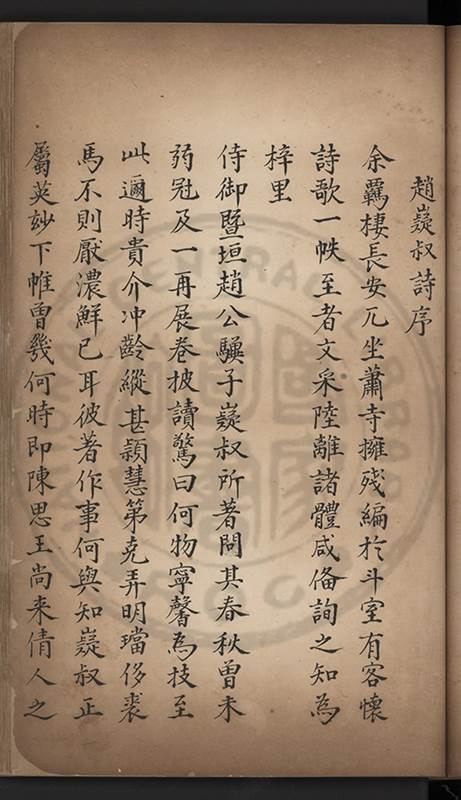 趙嶷叔詩序
余羈棲長安兀坐蕭寺擁殘編於斗室有客懷
詩歌一帙至者文采陸離諸體咸俻詢之知為
梓里
侍御暨垣趙公驥子嶷叔所著問其春秋曾未
弱冠及一再展卷披讀驚曰何物寧馨為技至
此邇時貴介冲齡縱甚穎慧第克弄明璫侈裘
馬不則厭濃鮮已耳彼著作事何與知嶷叔正
屬英玅下帷曾幾何時即陳思王尚来倩人之